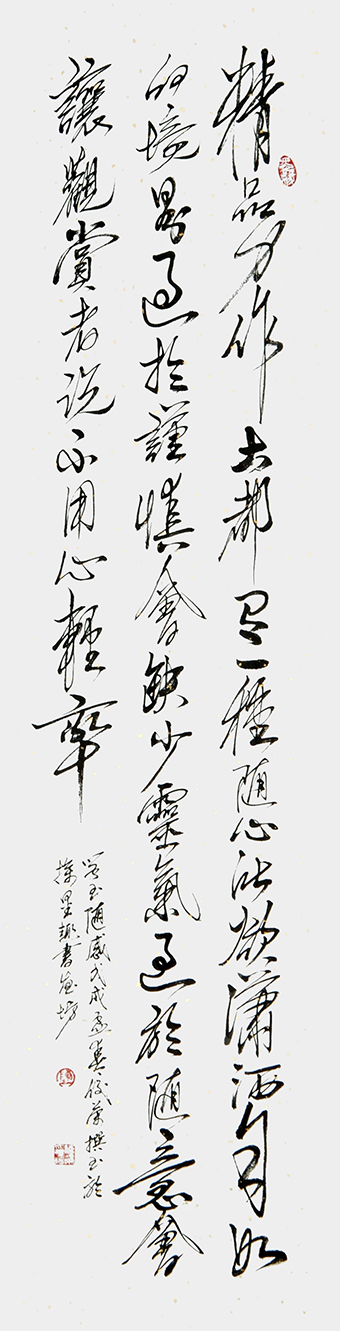 精品力作大都是一種隨心所欲瀟洒自如
的境界過於謹慎會缺少靈氣過於隨意會
讓觀賞者説不用心輕率
學書隨感戊戌孟春俊茂撰書於
攬星趣書畫坊